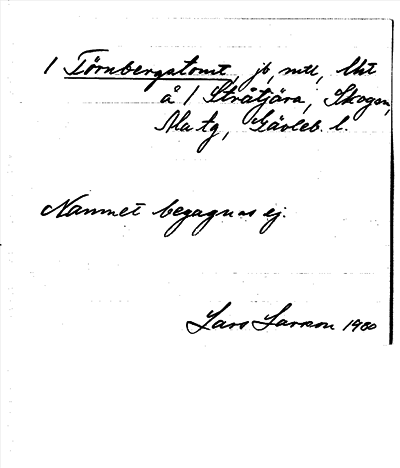 1 Törnbergstomt, jb, mtl,
å 1 Stråtjära, Skogen,
Ala tg, Gävleb. l.
Namnet begagnas ej.
Lars Larsson 1980